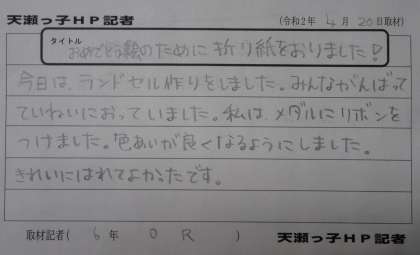 天瀬っ子HP記者
(令和2年 4月 20日取材)
タイトル
おめでとう会のために折り紙をおりました!
今日は、ランドセル作りをしました。みんながんばって
ていねいにおっていました。私は、メダルにリボンを
つけました。色あいが良くなるようにしました。
きれいにはれてよかったです。
取材記者( 6年 O R )
天瀬っ子HP記者